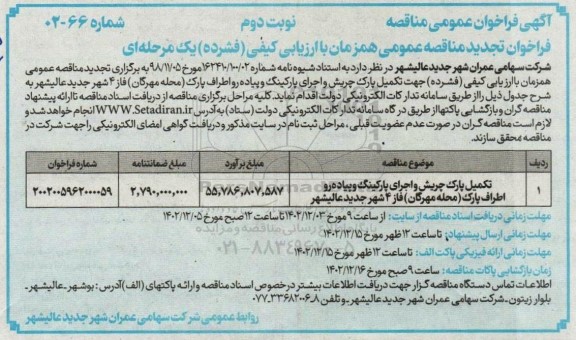 آگهی فراخوان عمومی مناقصه
نوبت دوم
شماره ۶۶-۰۲
فراخوان تجدید مناقصه عمومی همزمان با ارزیابی کیفی (فشرده) یک مرحله‌ای
شرکت سهامی عمران شهر جدید عالیشهر در نظر دارد به استناد شیوه نامه شماره ۱۶۲۴۱۰/۱۰۰/۰۲ مورخ ۹۸/۱۱/۰۵ به برگزاری تجدید مناقصه عمومی
همزمان با ارزیابی کیفی (فشرده) جهت تکمیل پارک چریش و اجرای پارکینگ و پیاده رو اطراف پارک (محله مهرگان) فاز ۴ شهر جدید عالیشهر به
شرح جدول ذیل را از طریق سامانه تدارکات الکترونیکی دولت اقدام نماید. کلیه مراحل برگزاری مناقصه از دریافت اسناد مناقصه تا ارائه پیشنهاد
مناقصه گران و بازگشایی پاکتها از طریق درگاه سامانه تدارکات الکترونیکی دولت (ستاد) به آدرس WWW.Setadiran.ir انجام خواهد شد و
لازم است مناقصه گران در صورت عدم عضویت قبلی، مراحل ثبت نام در سایت مذکور و دریافت گواهی امضای الکترونیکی را جهت شرکت در
مناقصه محقق سازند.
ردیف موضوع مناقصه مبلغ برآورد مبلغ ضمانتنامه شماره فراخوان
۱ تکمیل پارک چریش و اجرای پارکینگ و پیاده رو اطراف پارک (محله مهرگان) فاز ۴ شهر جدید عالیشهر ۵۵,۷۸۶,۸۰۷,۵۸۷ ۲,۷۹۰,۰۰۰,۰۰۰ ۲۰۰۲۰۰۵۹۶۲۰۰۰۰۵۹
مهلت زمانی دریافت اسناد مناقصه از سایت: از ساعت ۹ مورخ ۱۴۰۲/۱۲/۰۳ تا ساعت ۱۲ صبح مورخ ۱۴۰۲/۱۲/۰۵
مهلت زمانی ارسال پیشنهاد: تا ساعت ۱۲ ظهر مورخ ۱۴۰۲/۱۲/۱۵
مهلت زمانی ارائه فیزیکی پاکت الف: تا ساعت ۱۲ ظهر مورخ ۱۴۰۲/۱۲/۱۵
زمان بازگشایی پاکات مناقصه: ساعت ۹ صبح مورخ ۱۴۰۲/۱۲/۱۶
اطلاعات تماس دستگاه مناقصه گزار جهت دریافت اطلاعات بیشتر در خصوص اسناد مناقصه و ارائه پاکتهای (الف) آدرس: بوشهر-عالیشهر-
بلوار زیتون-شرکت سهامی عمران شهر جدید عالیشهر و تلفن ۸-۰۷۷۳۳۶۸۲۰۰۶
روابط عمومی شرکت سهامی عمران شهر جدید عالیشهر
۰۲۱-۸۸۳۴۹۶۷۰